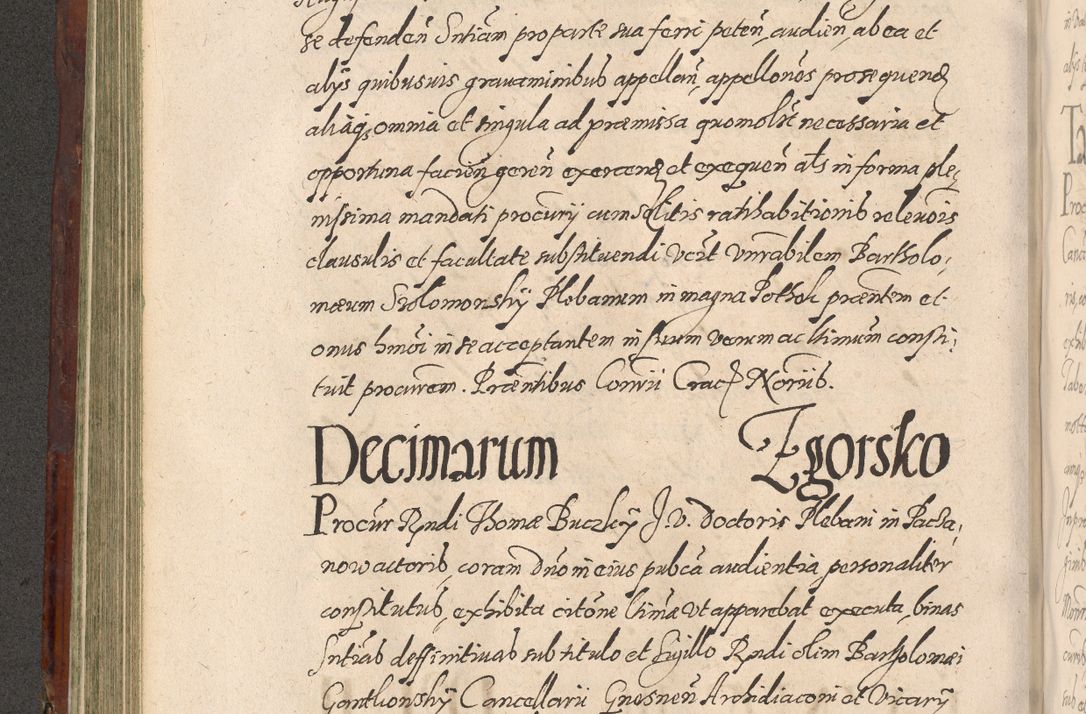 se defendeñ Sntiam pro parte sua ferri peteñ, audieñ, ab ea et
alÿs quibusuis grauaminibus appellañ, appellonõs prosequend
aliaq omnia et singula ad præmissa quomolt necessaria et
opportuna facieñ gereñ exercend et exequeñ als in forma ple,
nissima mandati procurÿ cum solitis ratihabitionib releuõis
clausulis et facultate substituendi vcit Vnrabilem Bartholo,
mæum Szolomonskÿ Plebanum in magna Pothok præntem et
onus hmõi in se acceptantem in suum verum ac ltimum consti,
tuit procurem. Præntibus Conrii Crac Norÿs.
Decimarum Zgorsko
Procur Rndi Thomæ Buczkÿ J. V. Doctoris Plebani in Pacza,
now actoris, coram dño in eius publca audientia personaliter
constitutus, exhibita citõne ltima vt apparebat executa, binas
Sntias deffinitiuas sub titulo et Sigillo Rndi olim Bartholomæi
Gantkonskÿ Cancellarii Gnesneñ Archidiaconi et Vicarÿ